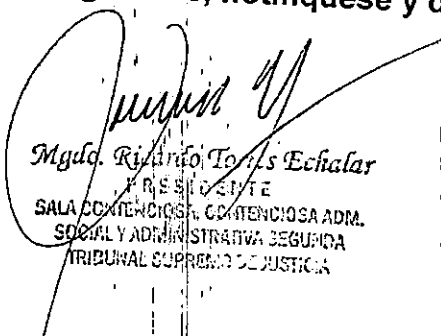 notifíquese y
Mgdo. Ricardo Torres Echalar
PRESIDENTE
SALA CONTENCIOSA, CONTENCIOSA ADM.
SOCIAL Y ADMINISTRATIVA SEGUNDA
TRIBUNAL SUPREMO DE JUSTICIA